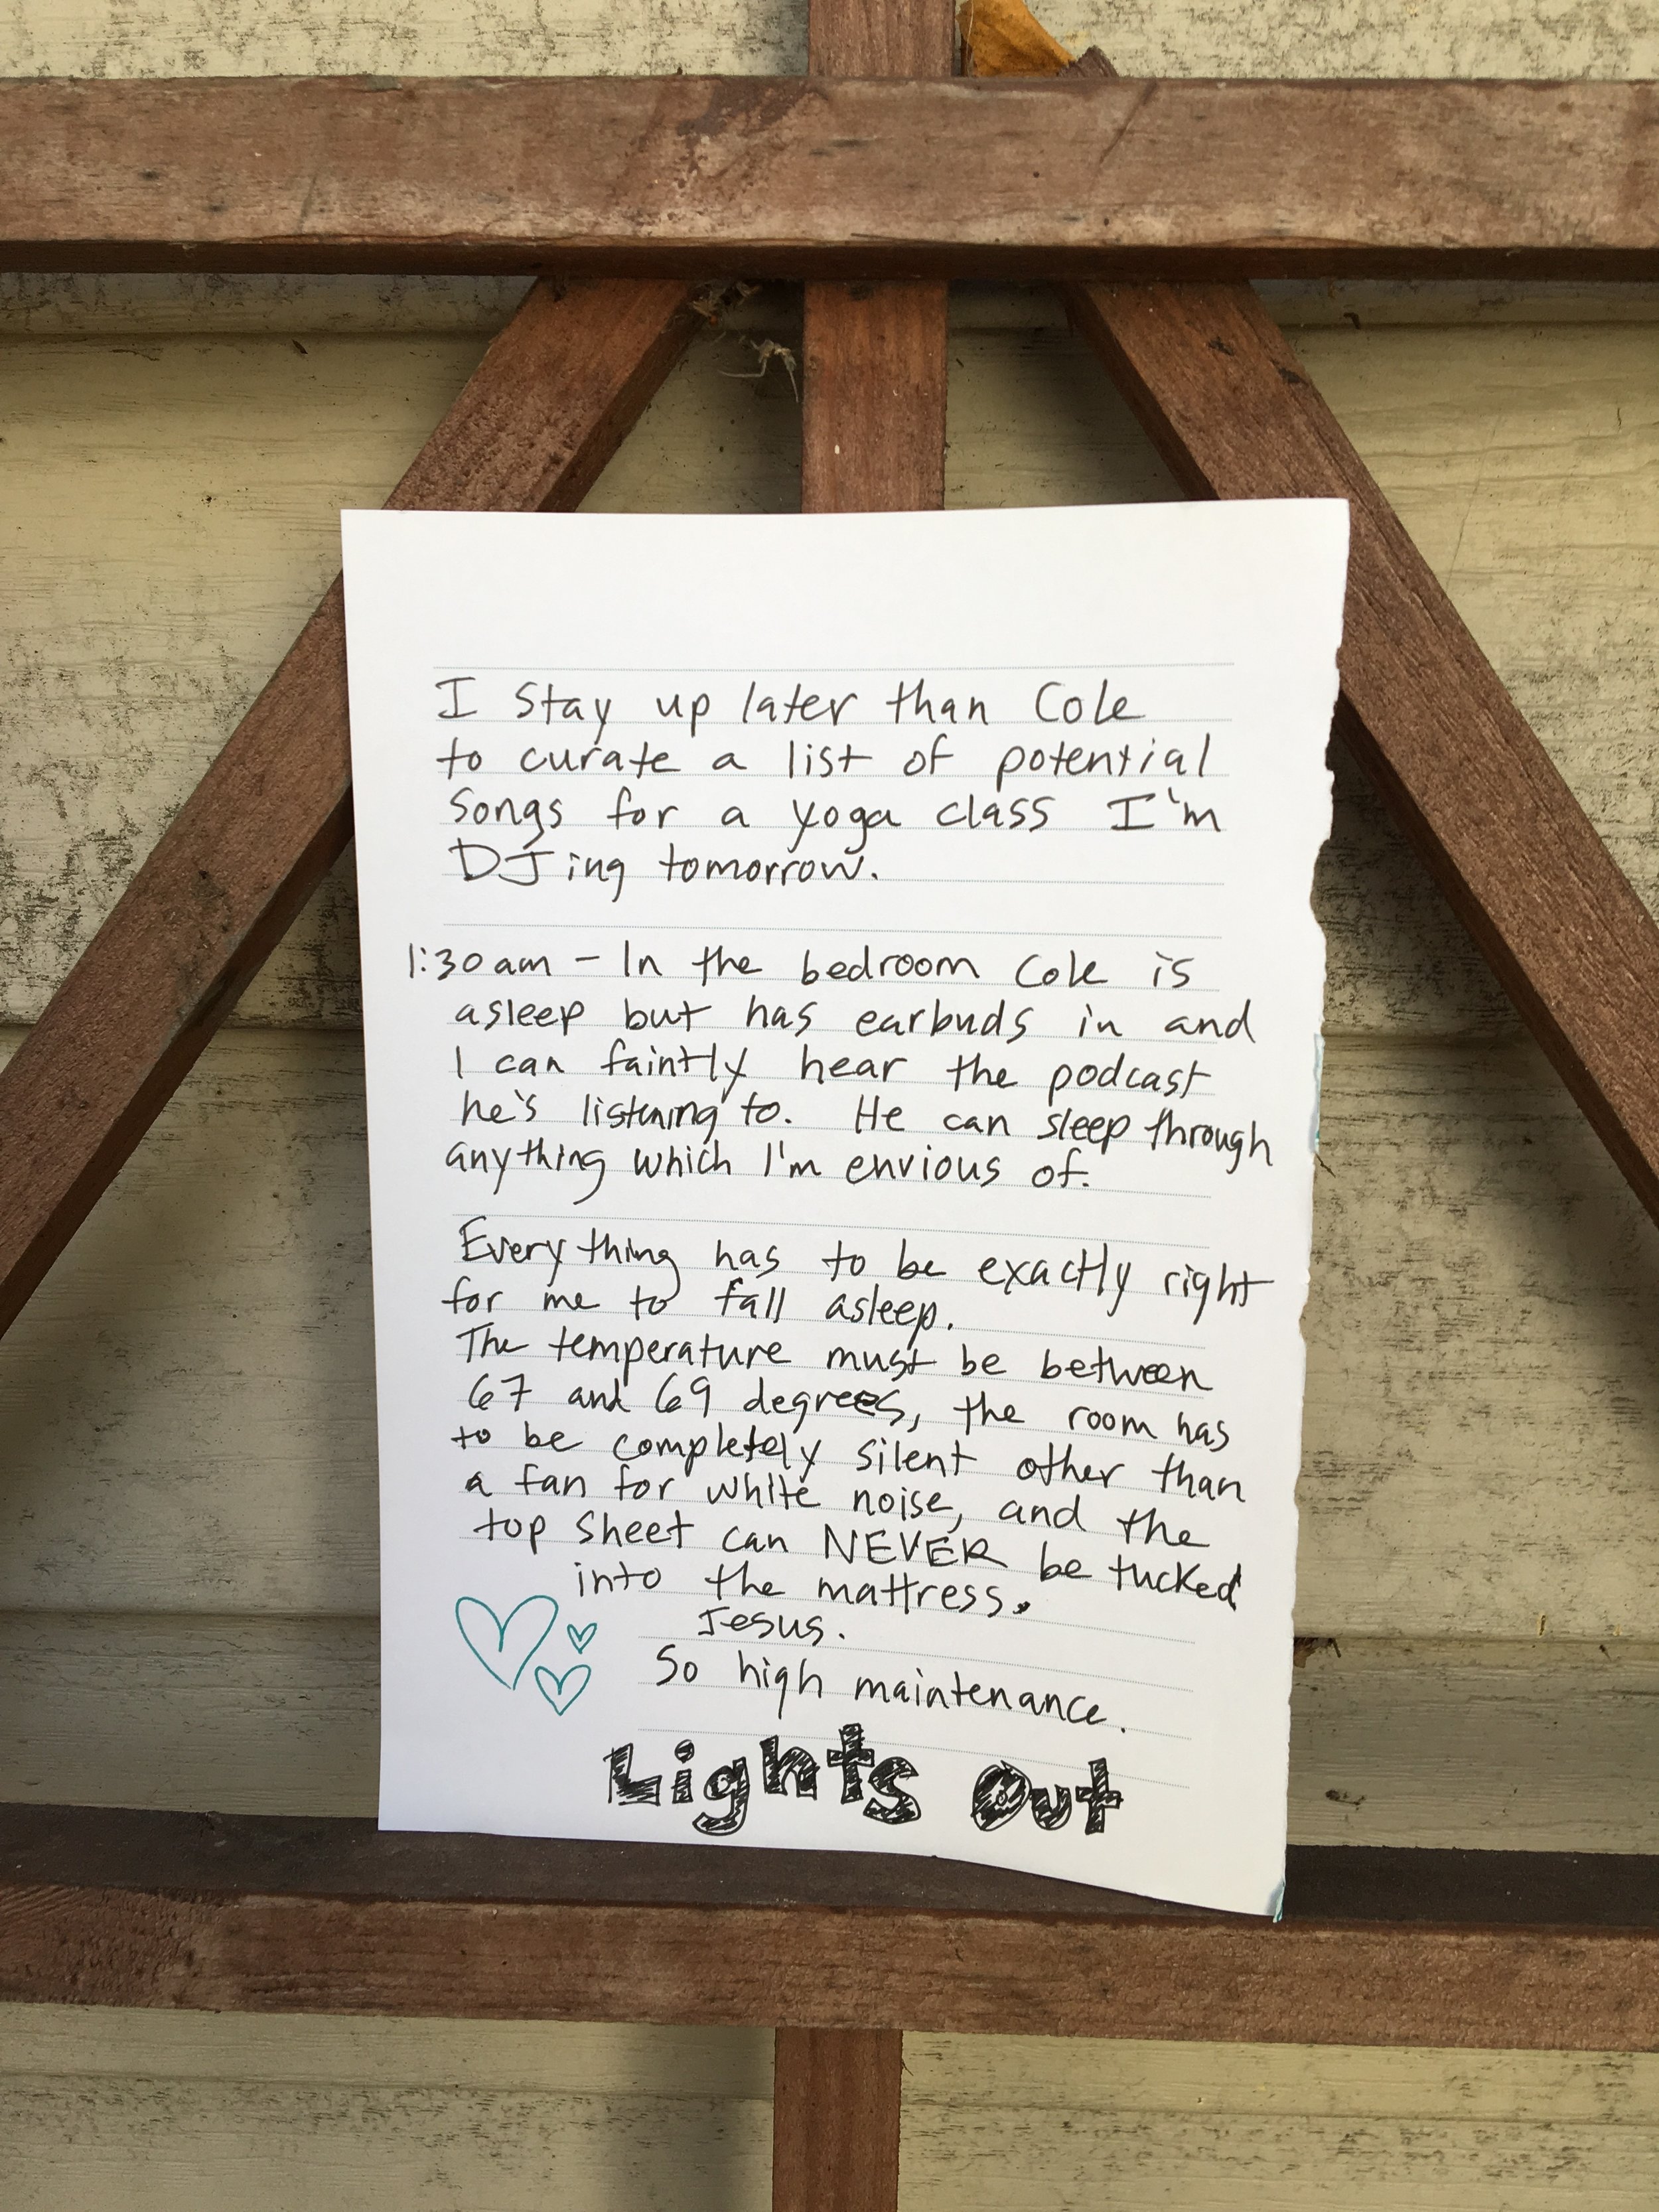 I stay up later than Cole
to curate a list of potential
songs for a yoga class I'm
DJing tomorrow.
1:30am - In the bedroom Cole is
asleep but has earbuds in and
I can faintly hear the podcast
he's listening to. He can sleep through
anything which I'm envious of.
Everything has to be exactly right
for me to fall asleep.
The temperature must be between
67 and 69 degrees, the room has
to be completely silent other than
a fan for white noise, and the
top sheet can NEVER be tucked
into the mattress.
Jesus.
So high maintenance.
Lights Out